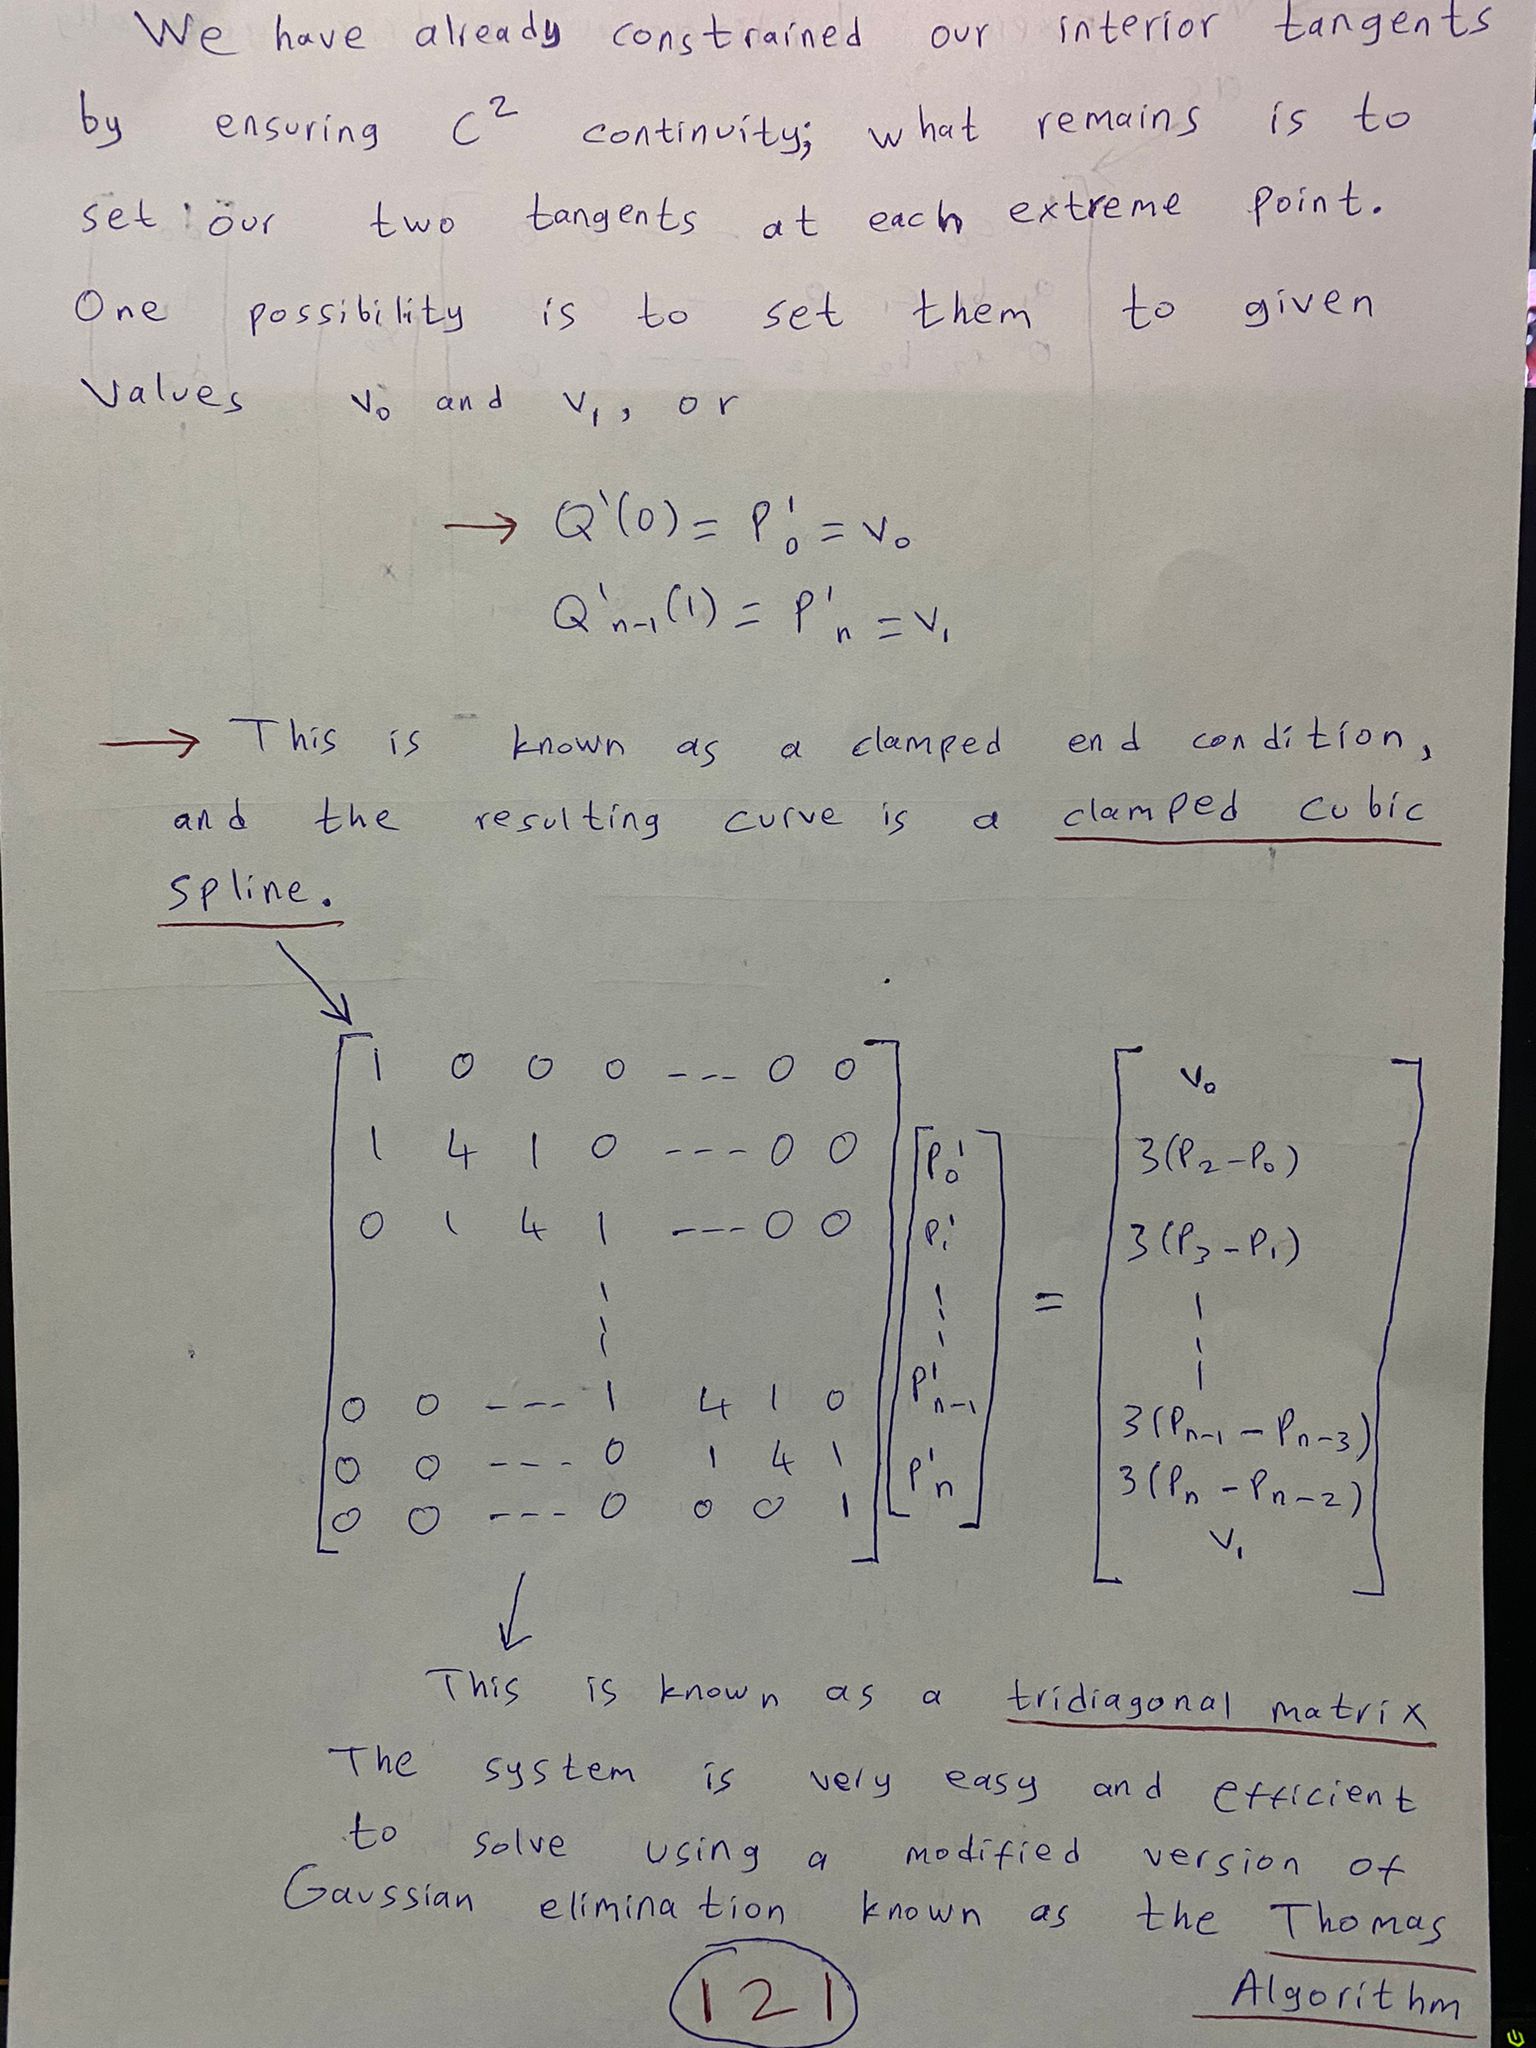 We have already constrained our interior tangents
by ensuring C² continuity; what remains is to
set our two tangents at each extreme point.
One possibility is to set them to given
values v₀ and v₁, or
→ Q'(0) = P'₀ = v₀
Q'ₙ₋₁(1) = P'ₙ = v₁
→ This is known as a clamped end condition,
and the resulting curve is a clamped cubic
spline.
1 0 0 0 --- 0 0 v₀
1 4 1 0 --- 0 0 P₀' 3(P₂-P₀)
0 1 4 1 --- 0 0 P₁' 3(P₃-P₁)
=
0 0 --- 1 4 1 0 P'ₙ₋₁ 3(Pₙ₋₁ - Pₙ₋₃)
0 0 --- 0 1 4 1 P'ₙ 3(Pₙ - Pₙ₋₂)
0 0 --- 0 0 0 1 v₁
This is known as a tridiagonal matrix
The system is very easy and efficient
to solve using a modified version of
Gaussian elimination known as the Thomas
Algorithm
121